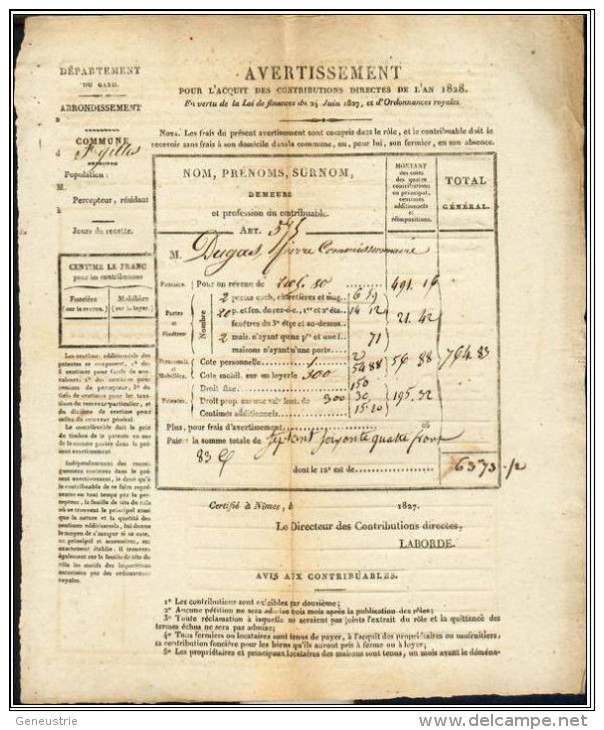 DÉPARTEMENT
DU GARD.
ARRONDISSEMENT
D
COMMUNE
d St gilles
Population :
M.
Percepteur, résidant
à
Jours de recette.
CENTIME LE FRANC
pour les contributions
Foncière Mobilière
(sur le revenu.) (sur le loyer.)
Les centimes additionnels des
Le contribuable doit le
prix du timbre de patente en sus
de la somme portée dans le présent
avertissement.
Indépendamment des renseignemens
contenus dans le présent
avertissement, le droit qu'a
le contribuable de se faire représenter
en tout temps par le percepteur,
la feuille de tête du rôle
AVERTISSEMENT
POUR L'ACQUIT DES CONTRIBUTIONS DIRECTES DE L'AN 1828.
En vertu de la Loi de finances du 24 Juin 1827, et d'Ordonnances royales.
NOTA. Les frais du présent avertissement sont compris dans le rôle, et le contribuable doit le
recevoir sans frais à son domicile dans la commune, ou, pour lui, son fermier, en son absence.
NOM, PRÉNOMS, SURNOM,
DEMEURE
et profession du contribuable.
MONTANT
des cotes
des quatre
contributions
en principal,
centimes
additionnels
et
réimpositions.
TOTAL
GÉNÉRAL.
ART. 575
M. Dugas, pierre Commissionnaire
Foncière. Pour un revenu de 491. 16
Portes et Fenêtres. Nombre
2 portes coch., charretières et mag. 6 19
20 p. et fen. du rez-de-c., 1er et 2e éta. 14 12
fenêtres du 3e étage et au-dessus. 21. 42
2 mais. n'ayant qu'une pte et une f. 71
maisons n'ayant qu'une porte.
Personnelle et Mobilière. Cote personnelle. 1 2
Cote mobil. sur un loyer de 300 54 88 56 88 764. 83
Patentes. Droit fixe. 150
Droit prop. sur une val. locat. de 300 30 195. 32
Centimes additionnels. 15. 20
Plus, pour frais d'avertissement. 05
Payer la somme totale de sept cent soixante quatre francs
83 C
dont le 12e est de 63 73 1/2
Certifié à Nîmes, le 1827.
Le Directeur des Contributions directes,
LABORDE.
AVIS AUX CONTRIBUABLES.
1° Les contributions sont exigibles par douzième;
2° Aucune pétition ne sera admise trois mois après la publication des rôles;
3° Toute réclamation à laquelle ne seraient pas joints l'extrait du rôle et la quittance des
termes échus ne sera pas admise;
4° Tous fermiers ou locataires sont tenus de payer, à l'acquit des propriétaires ou usufruitiers,
sa contribution foncière pour les biens qu'ils auront pris à ferme ou à loyer;
5° Les propriétaires et principaux locataires des maisons sont tenus, un mois avant le déména-
Geneustrie
delcampe.net